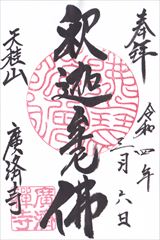 奉拝
令和四年
三月六日
釈迦尊佛
天桂山
廣済寺